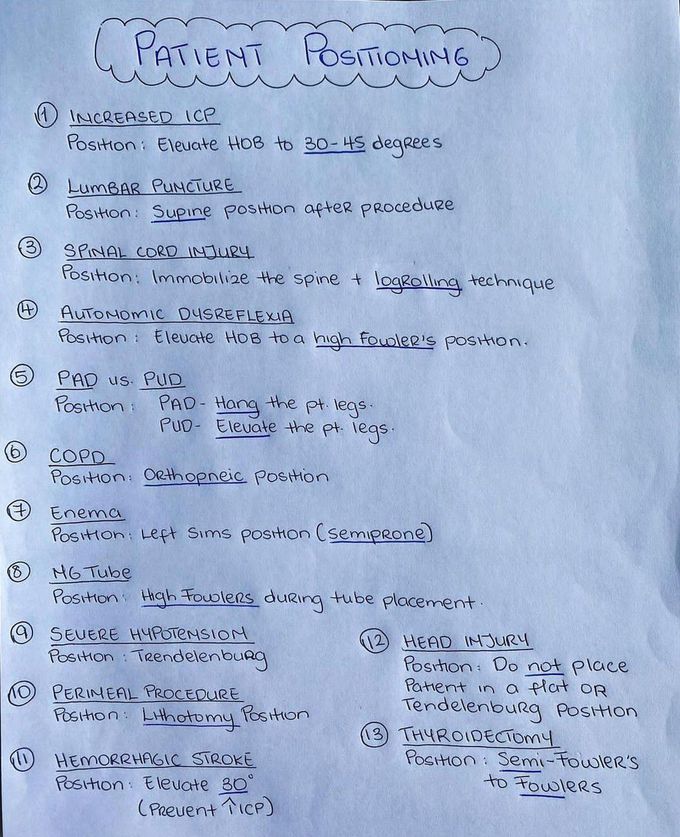 PATIENT POSITIONING
① INCREASED ICP
Position: Elevate HOB to 30-45 degrees
② LUMBAR PUNCTURE
Position: Supine position after procedure
③ SPINAL CORD INJURY
Position: Immobilize the spine + logrolling technique
④ AUTONOMIC DYSREFLEXIA
Position: Elevate HOB to a high Fowler's position.
⑤ PAD vs. PUD
Position: PAD- Hang the pt. legs.
PUD- Elevate the pt. legs.
⑥ COPD
Position: Orthopneic position
⑦ Enema
Position: Left Sims position (semiprone)
⑧ NG Tube
Position: High Fowlers during tube placement.
⑨ SEVERE HYPOTENSION
Position: Trendelenburg
⑩ PERINEAL PROCEDURE
Position: Lithotomy Position
⑪ HEMORRHAGIC STROKE
Position: Elevate 30°
(Prevent ↑ICP)
⑫ HEAD INJURY
Position: Do not place
Patient in a flat OR
Tendelenburg position
⑬ THYROIDECTOMY
Position: Semi-Fowler's
to Fowlers